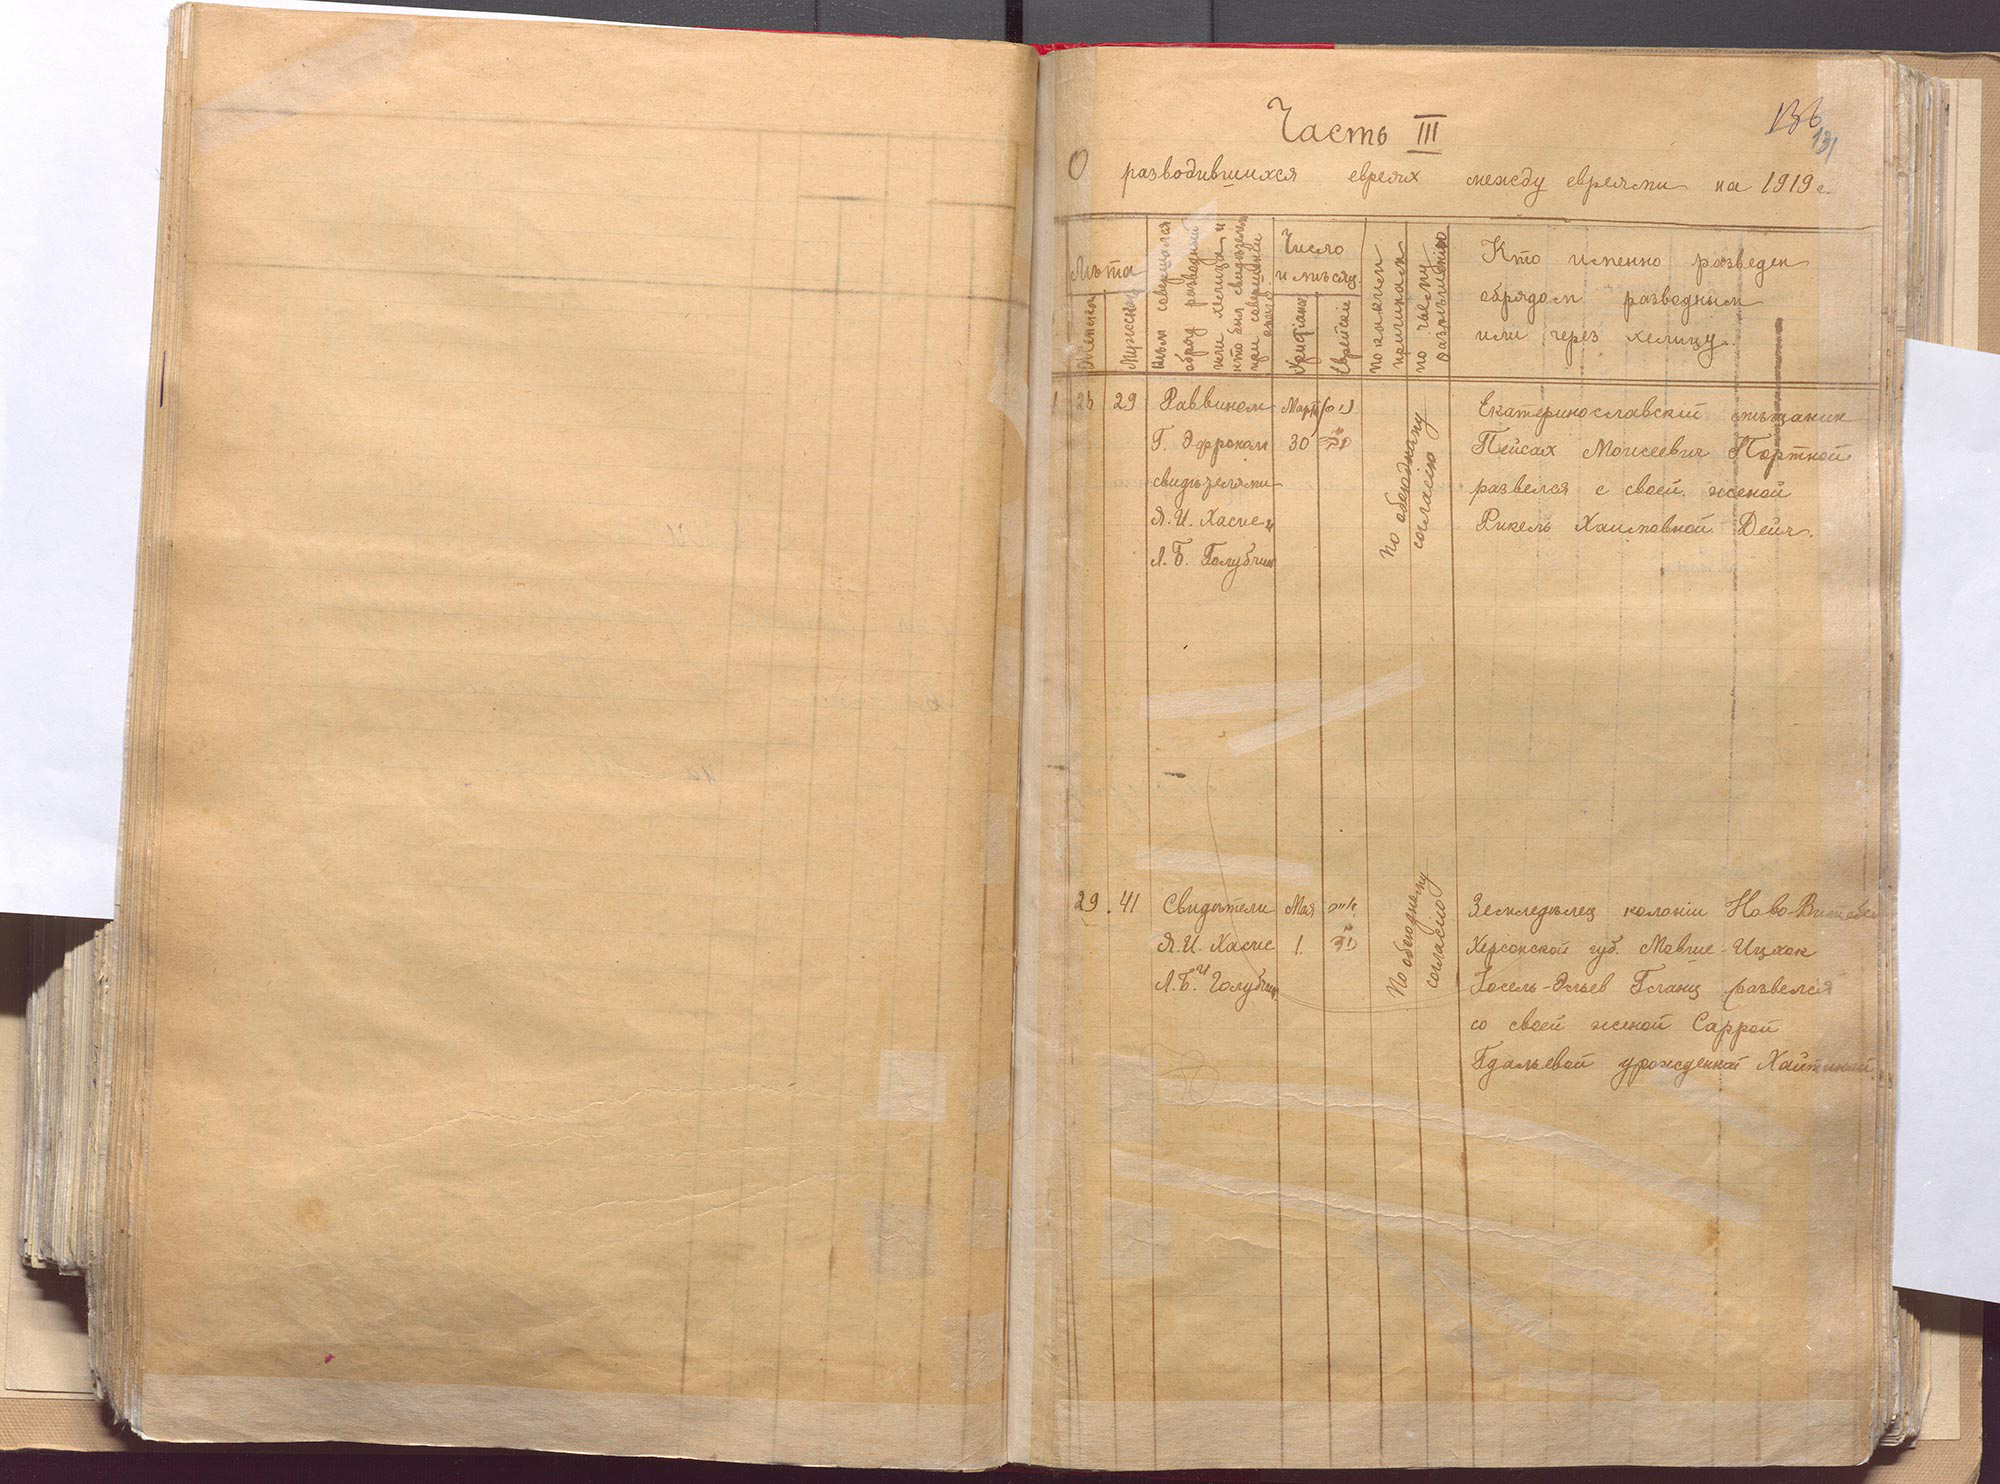 Часть III
136
131
О разводившихся евреях между евреями на 1919 г.
Лѣта
Женска
Мужска
Кѣмъ совершался
обряд разводный
или хелица и
кто был свидѣтелем
при совершеніи
онаго
Число
и мѣсяц
Христіанс
Еврейскі
по каким
причинам
по чьему
разрѣшенію
Кто именно разведен
обрядом разводным
или через хелицу.
1
25
29
Раввином
Г. Эфроном
свидѣтелями
Я. И. Хасие и
Л. Б. Голубчик
Март
30
По обоюдному
согласію
Екатеринославскій мѣщанин
Пейсах Моисеевич Портной
развелся с своей женой
Рикель Хаимовной Дейч.
29
41
Свидѣтели
Я. И. Хасие
и
Л. Б. Голубчик
Мая
1.
По обоюдному
согласію
Земледѣлец колоніи Ново-Витебск
Херсонской губ. Мовше-Ицхок
Іосель-Эльев Гланц развелся
со своей женой Саррой
Гдальевой урожденной Хайтиной